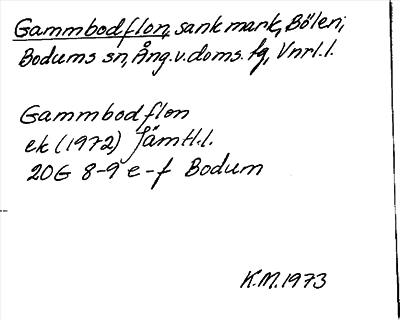 Gammbodflon, sank mark, Bölen,
Bodums sn, Ång.v.doms.fg, Vnrl.l.
Gammbodflon
ek (1972) Jämtl.l.
20G 8-9 e-f Bodum
K.M. 1973